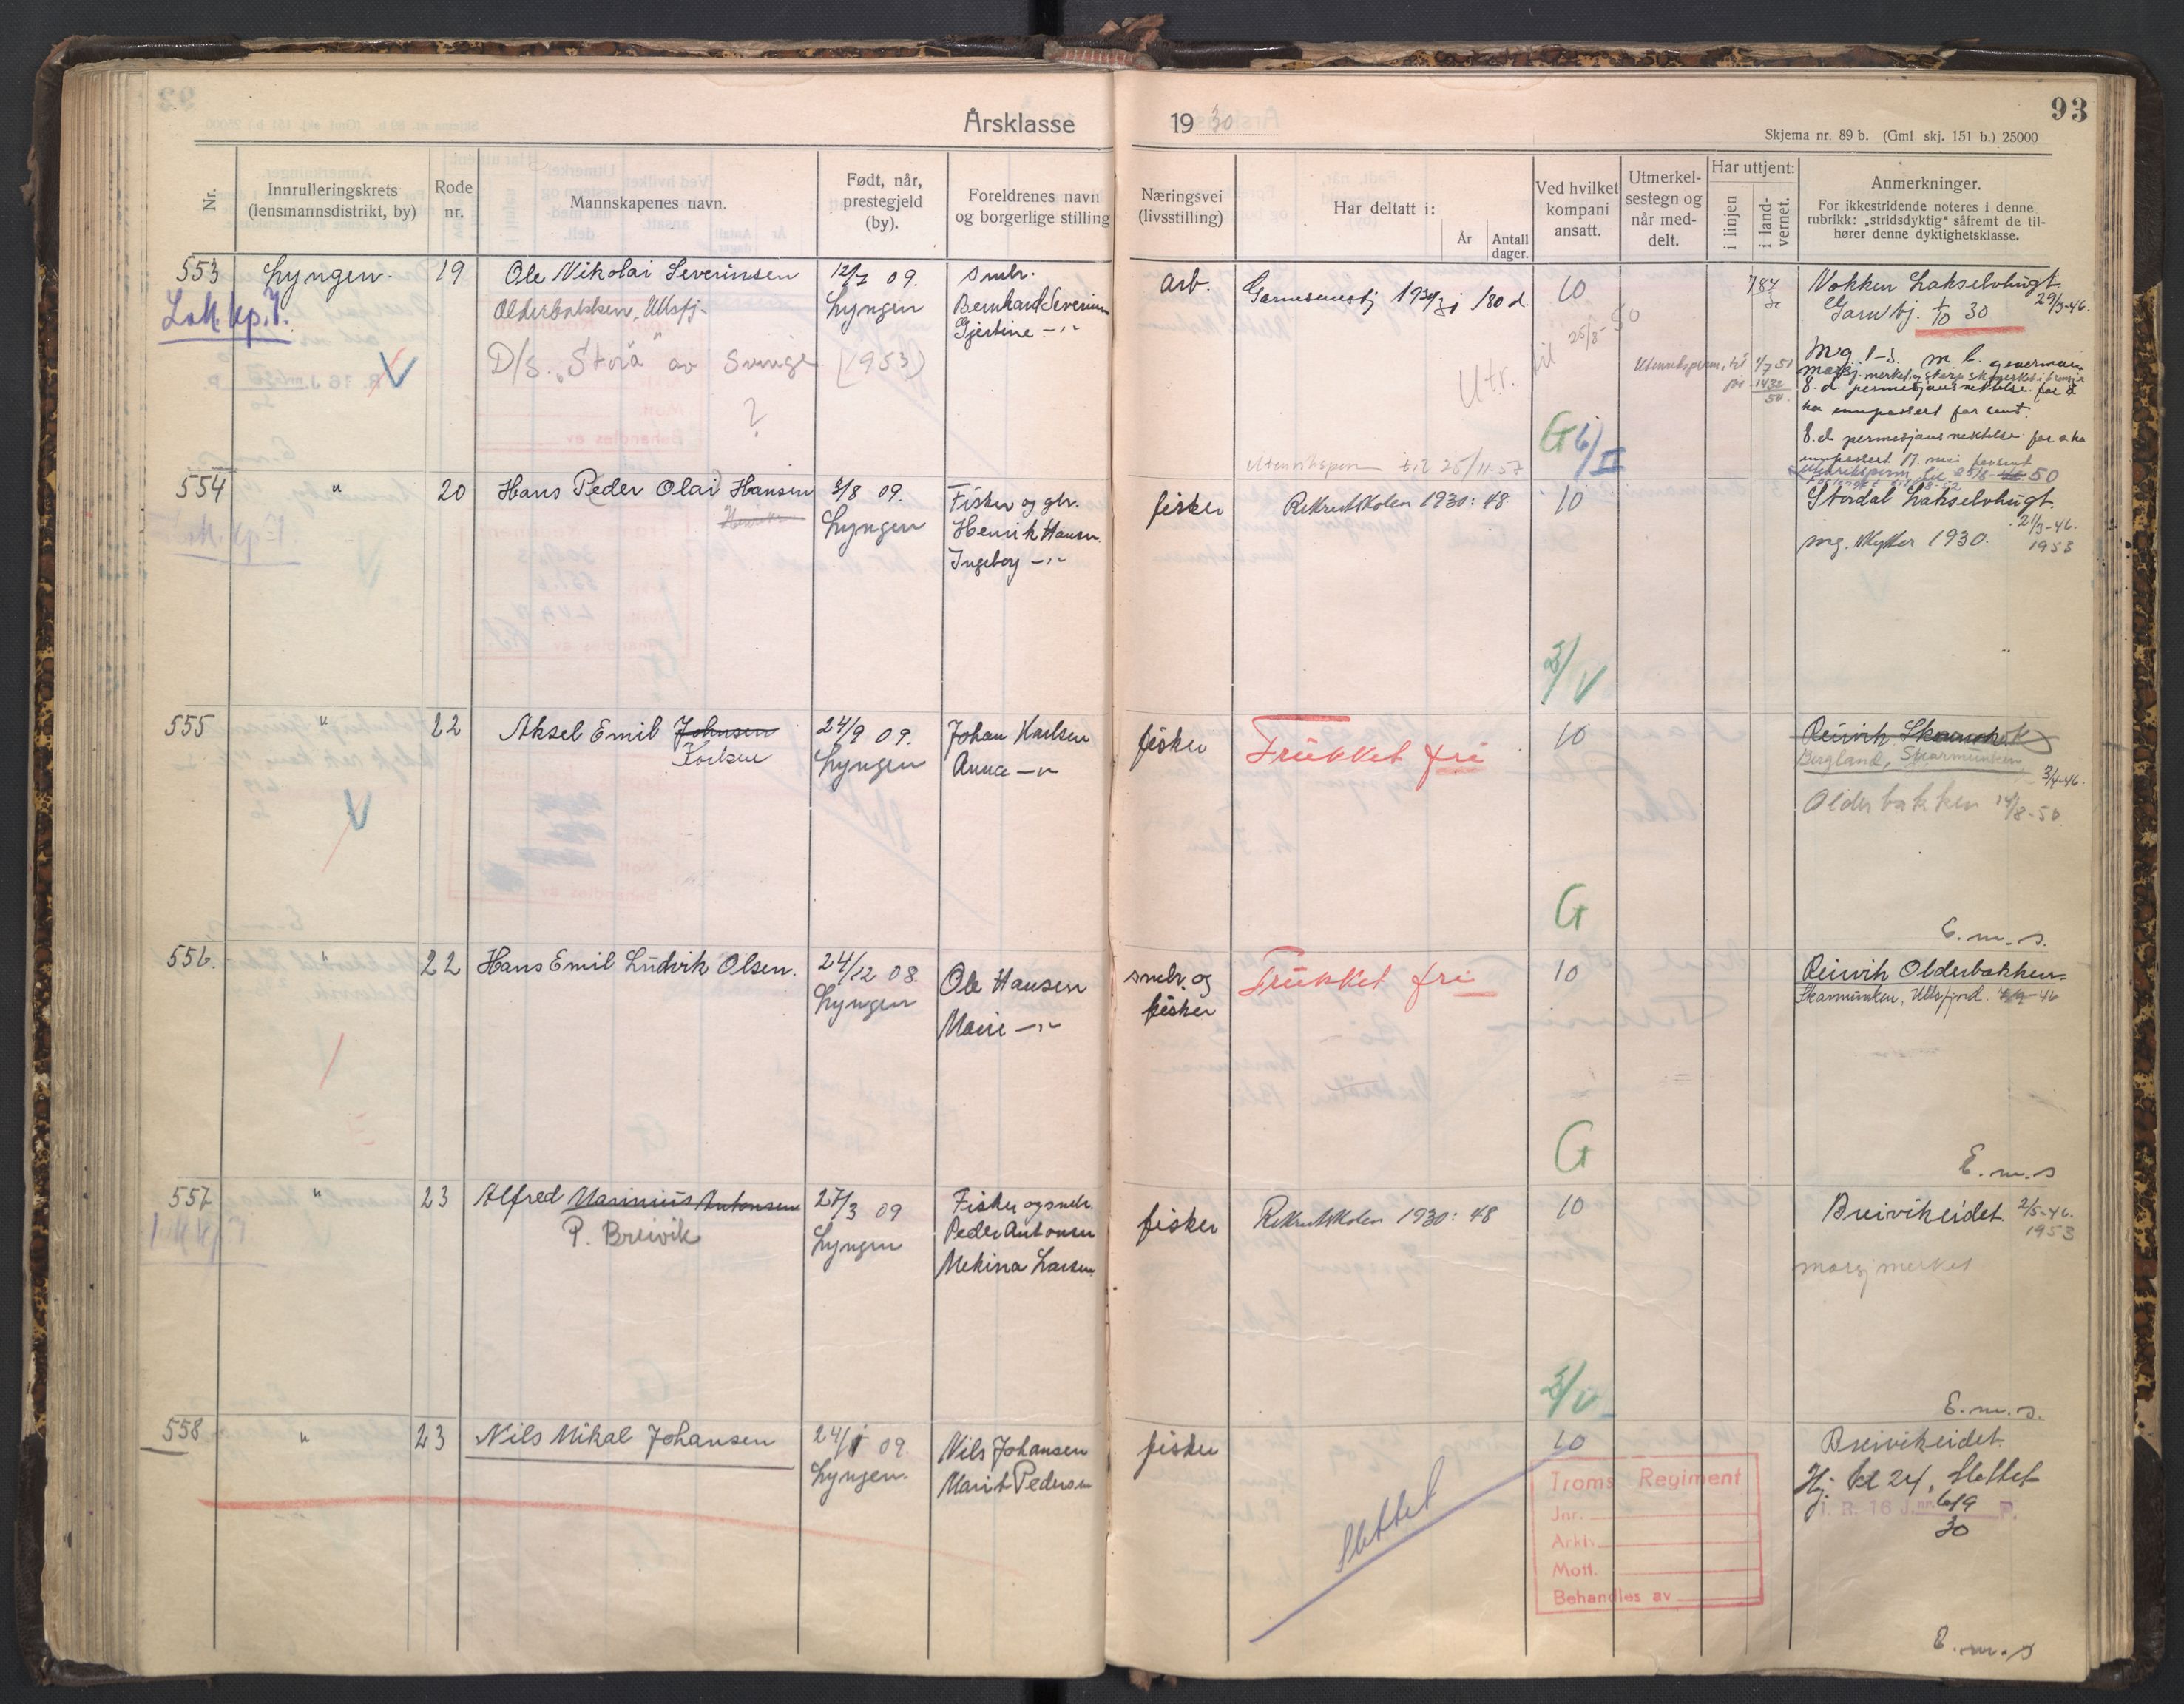 93
Årsklasse 1930
Skjema nr. 89 b. (Gml skj. 151 b.) 25000
Nr.
Innrulleringskrets
(lensmannsdistrikt, by)
Rode
nr.
Mannskapenes navn.
Født, når,
prestegjeld
(by).
Foreldrenes navn
og borgerlige stilling
Næringsvei
(livsstilling)
Har deltatt i:
År
Antall
dager.
Ved hvilket
kompani
ansatt.
Utmerkel-
sestegn og
når med-
delt.
Har uttjent:
i linjen
i land-
vernet.
Anmerkninger.
For ikkestridende noteres i denne
rubrikk: „stridsdyktig" såfremt de til-
hører denne dyktighetsklasse.
553
Lyngen.
19
Ole Nikolai Severinsen
Olderbakken, Ullsfj.
D/s. „Storå" av Sverige (1953)
?
V
12/7 09.
Lyngen
smbr.
Bernhard Severinsen
Gjertine — " —
arb.
180 d.
10
Utr. til 25/8-50
G 6/II
Utenriksperm til 25/11-57
Nokken Lakselvbugt.
29/3-46.
Garnbj. 1/10 30
8. d. permisjonsnektelse for å
ha innpassert for sent.
8. d. permisjonsnektelse for å ha
innpassert 17. mai forsent
554
"
20
Hans Peder Olai Hansen
3/8 09.
Lyngen
Fisker og gbr.
Henrik Hansen.
Ingeborg — " —
fisker
Rekrutskolen 1930: 48
10
3/V
Stordal Lakselvbugt.
21/3-46.
1953
mg. skytter 1930.
555
"
22
Aksel Emil Johnsen
Karlsen
V
24/9 09.
Lyngen
Johan Karlsen
Anna — " —
fisker
Trukket fri
10
G
Reinvik Skarmunk
Bergland, Skarmunken
3/4-46.
Olderbakken 14/8-50
E. m. s.
556.
"
22
Hans Emil Ludvik Olsen.
24/12 08.
Lyngen
Ole Hansen
Marie — " —
smbr. og
fisker
Trukket fri
10
G
Reinvik Olderbakken
Skarmunken, Ullsfjord. 4/9-46
E. m. s
557
"
23
Alfred Marinius Antonsen
P. Breivik
27/3 09
Lyngen
Fisker og smbr.
Peder Antonsen
Mekina Larsen
fisker
Rekrutskolen 1930: 48
10
3/V
Breivikeidet. 2/5-46.
1953
marsjmerket
E. m. s.
558
"
23
Nils Mikal Johansen
24/1 09.
Lyngen.
Nils Johansen
Marit Pedersen
fisker
Slettet
10
Troms Regiment
Jnr.
Arkh.
Mott.
Behandles av
Breivikeidet.
Hj. kl 24, Slettet
I. R. 16 J.nr. 619 P.
30
E. m. s